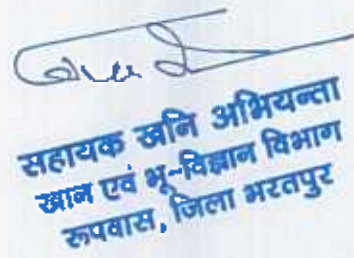 सहायक खनि अभियन्ता
खान एवं भू-विज्ञान विभाग
रूपवास, जिला भरतपुर